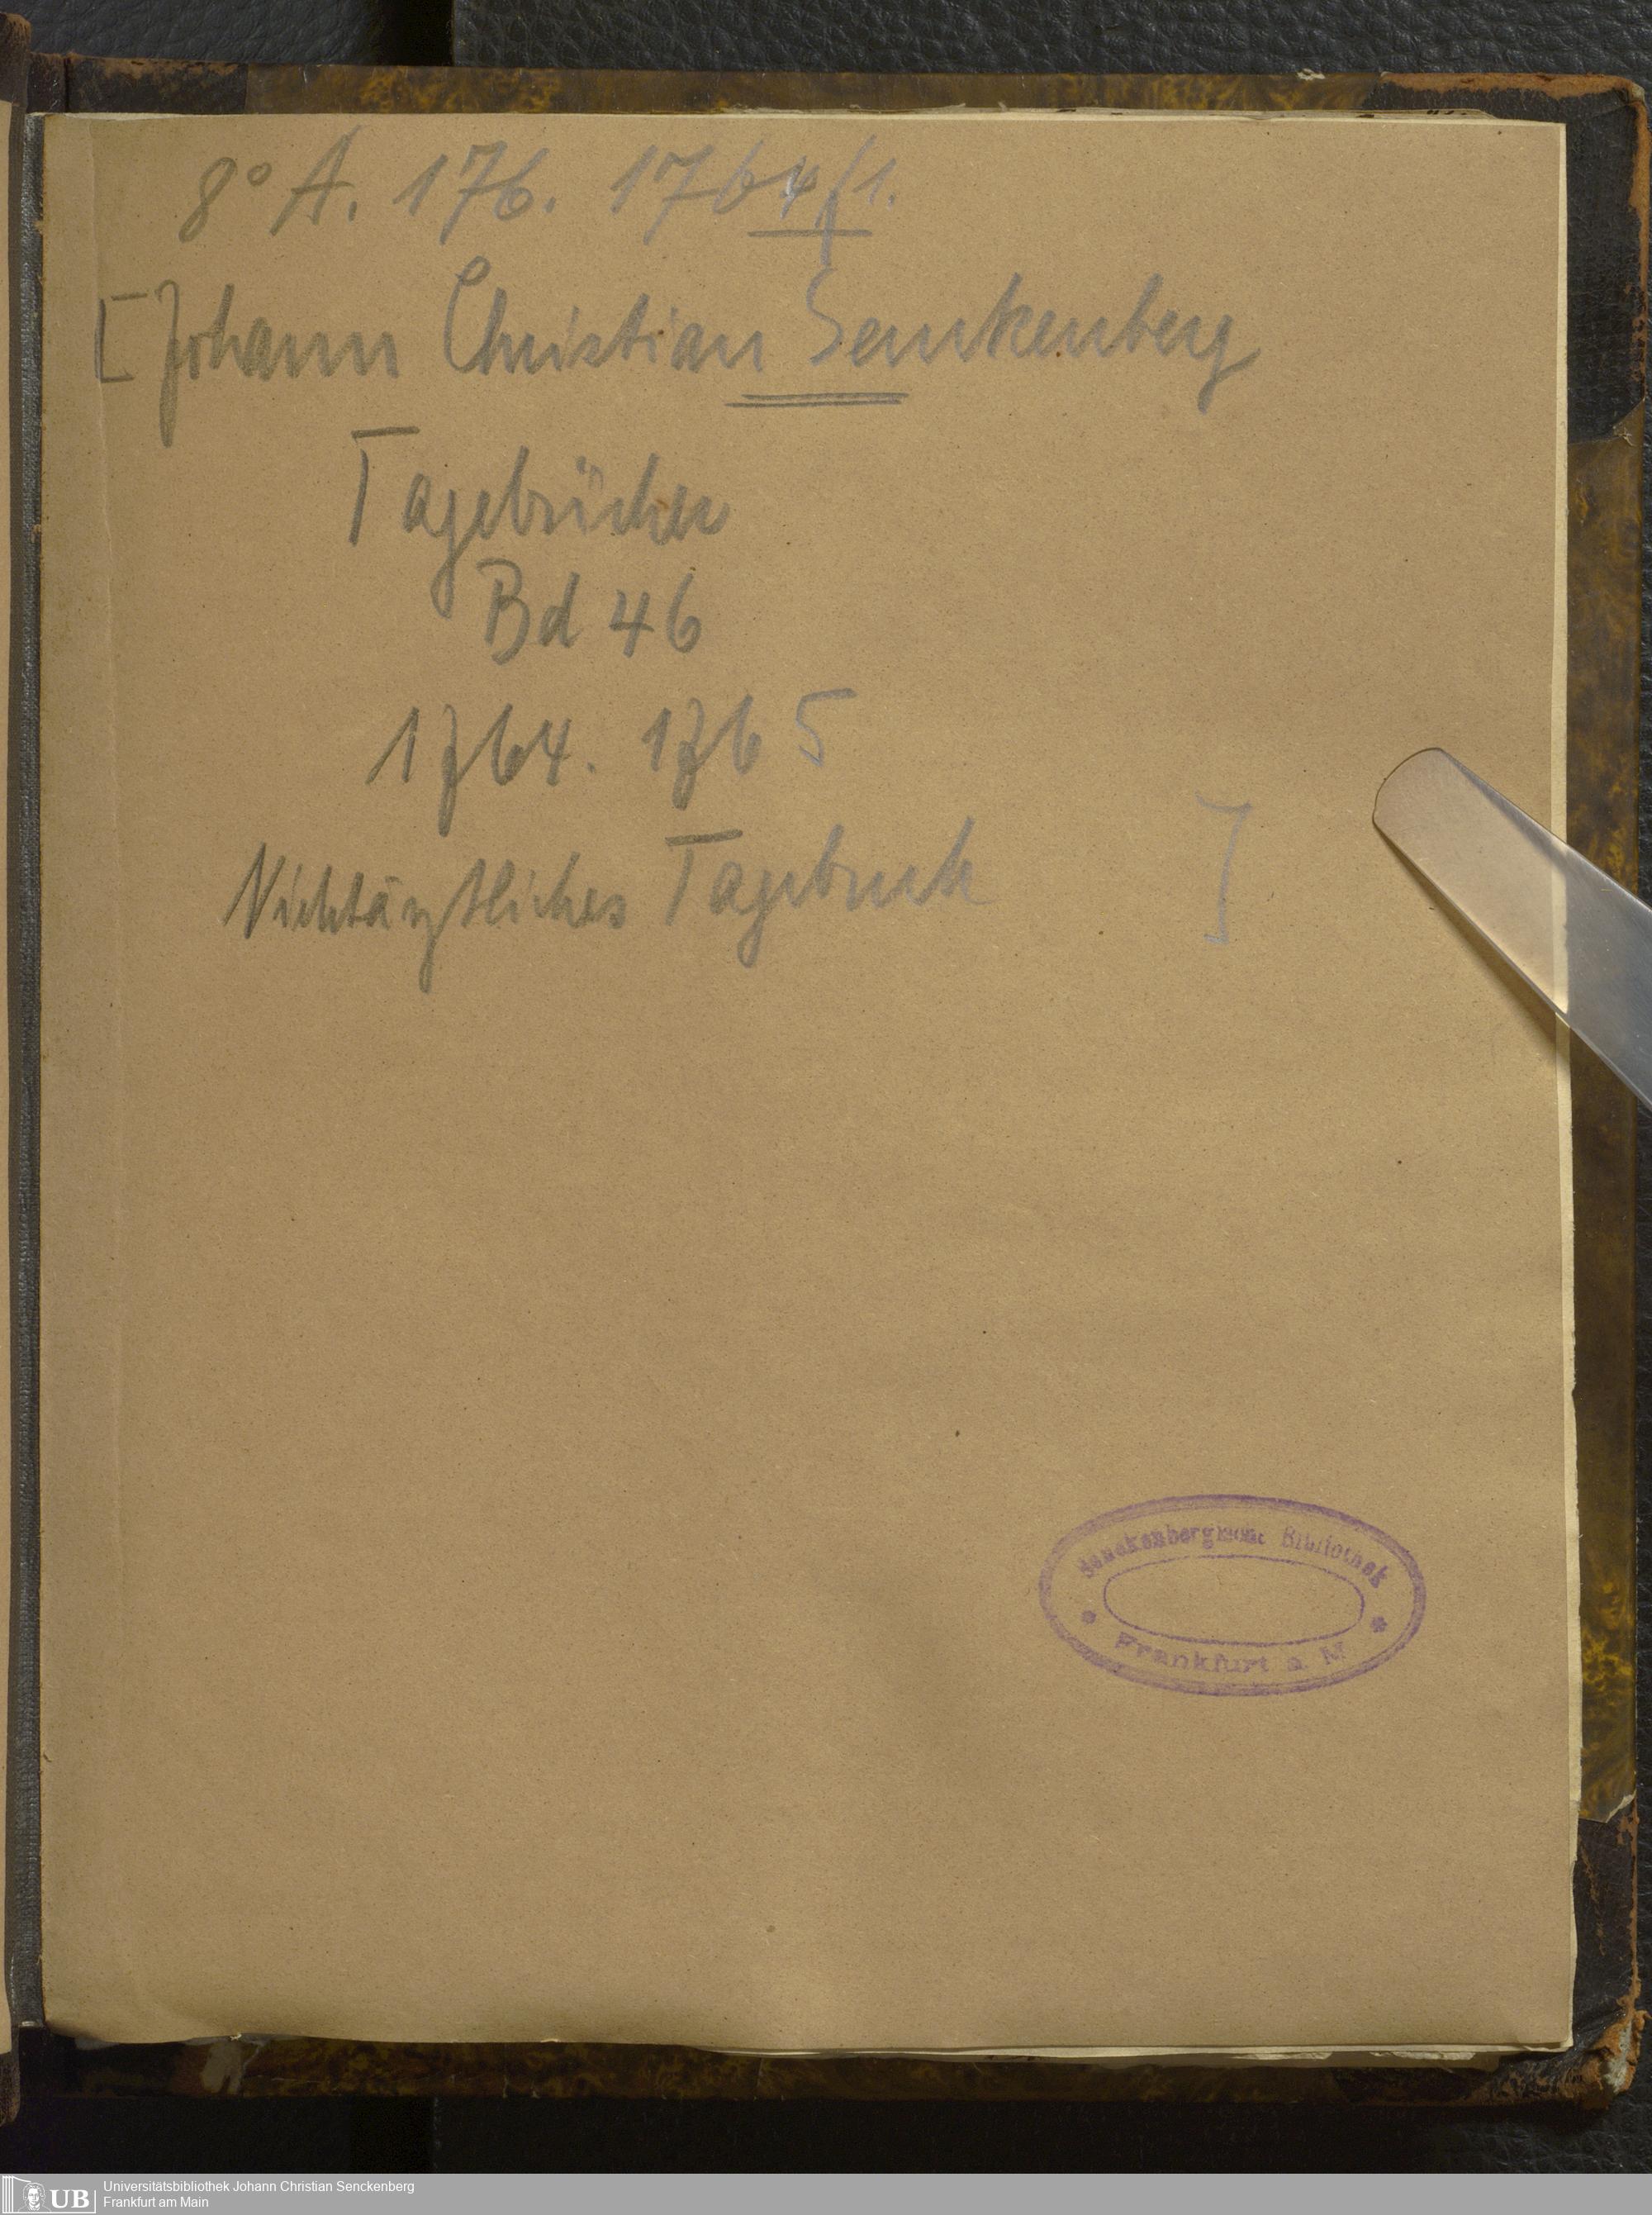 8° A. 176. 1764/1.
[Johann Christian Senckenberg
Tagebücher
Bd 46
1764. 1765
Nichtärztliches Tagebuch ]
Senckenbergische Bibliothek
Frankfurt a M
UB
Universitätsbibliothek Johann Christian Senckenberg
Frankfurt am Main